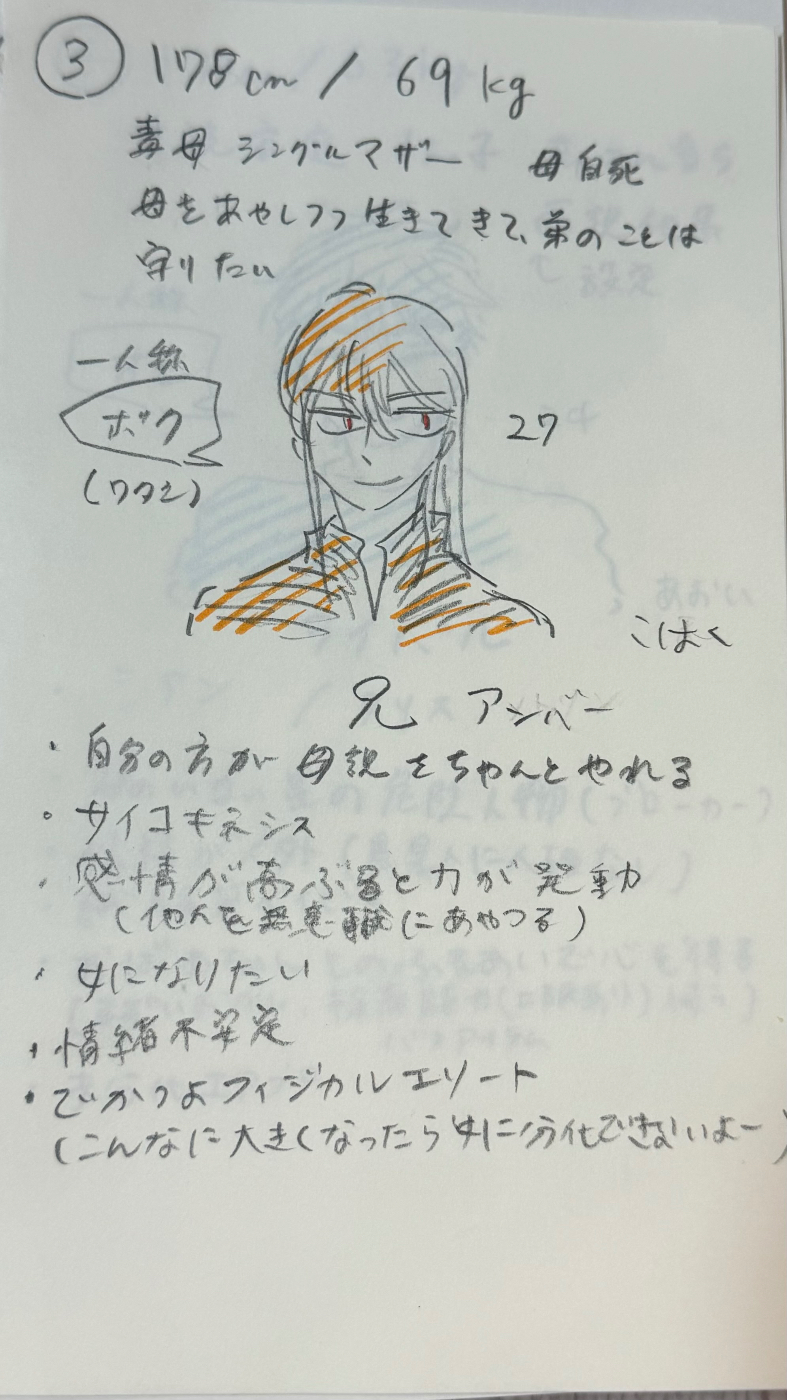 ③ 178cm / 69kg
毒母 シングルマザー 母自死
母をあやしつつ生きてきて、弟のことは
守りたい
一人称
ボク
(ワタシ)
27
こはく
兄 アンバー
・自分の方が母親をちゃんとやれる
・サイコキネシス
・感情が高ぶると力が発動
(他人を無意識にあやつる)
・女になりたい
・情緒不安定
・でかつよフィジカルエリート
(こんなに大きくなったら女に分化できないよー)